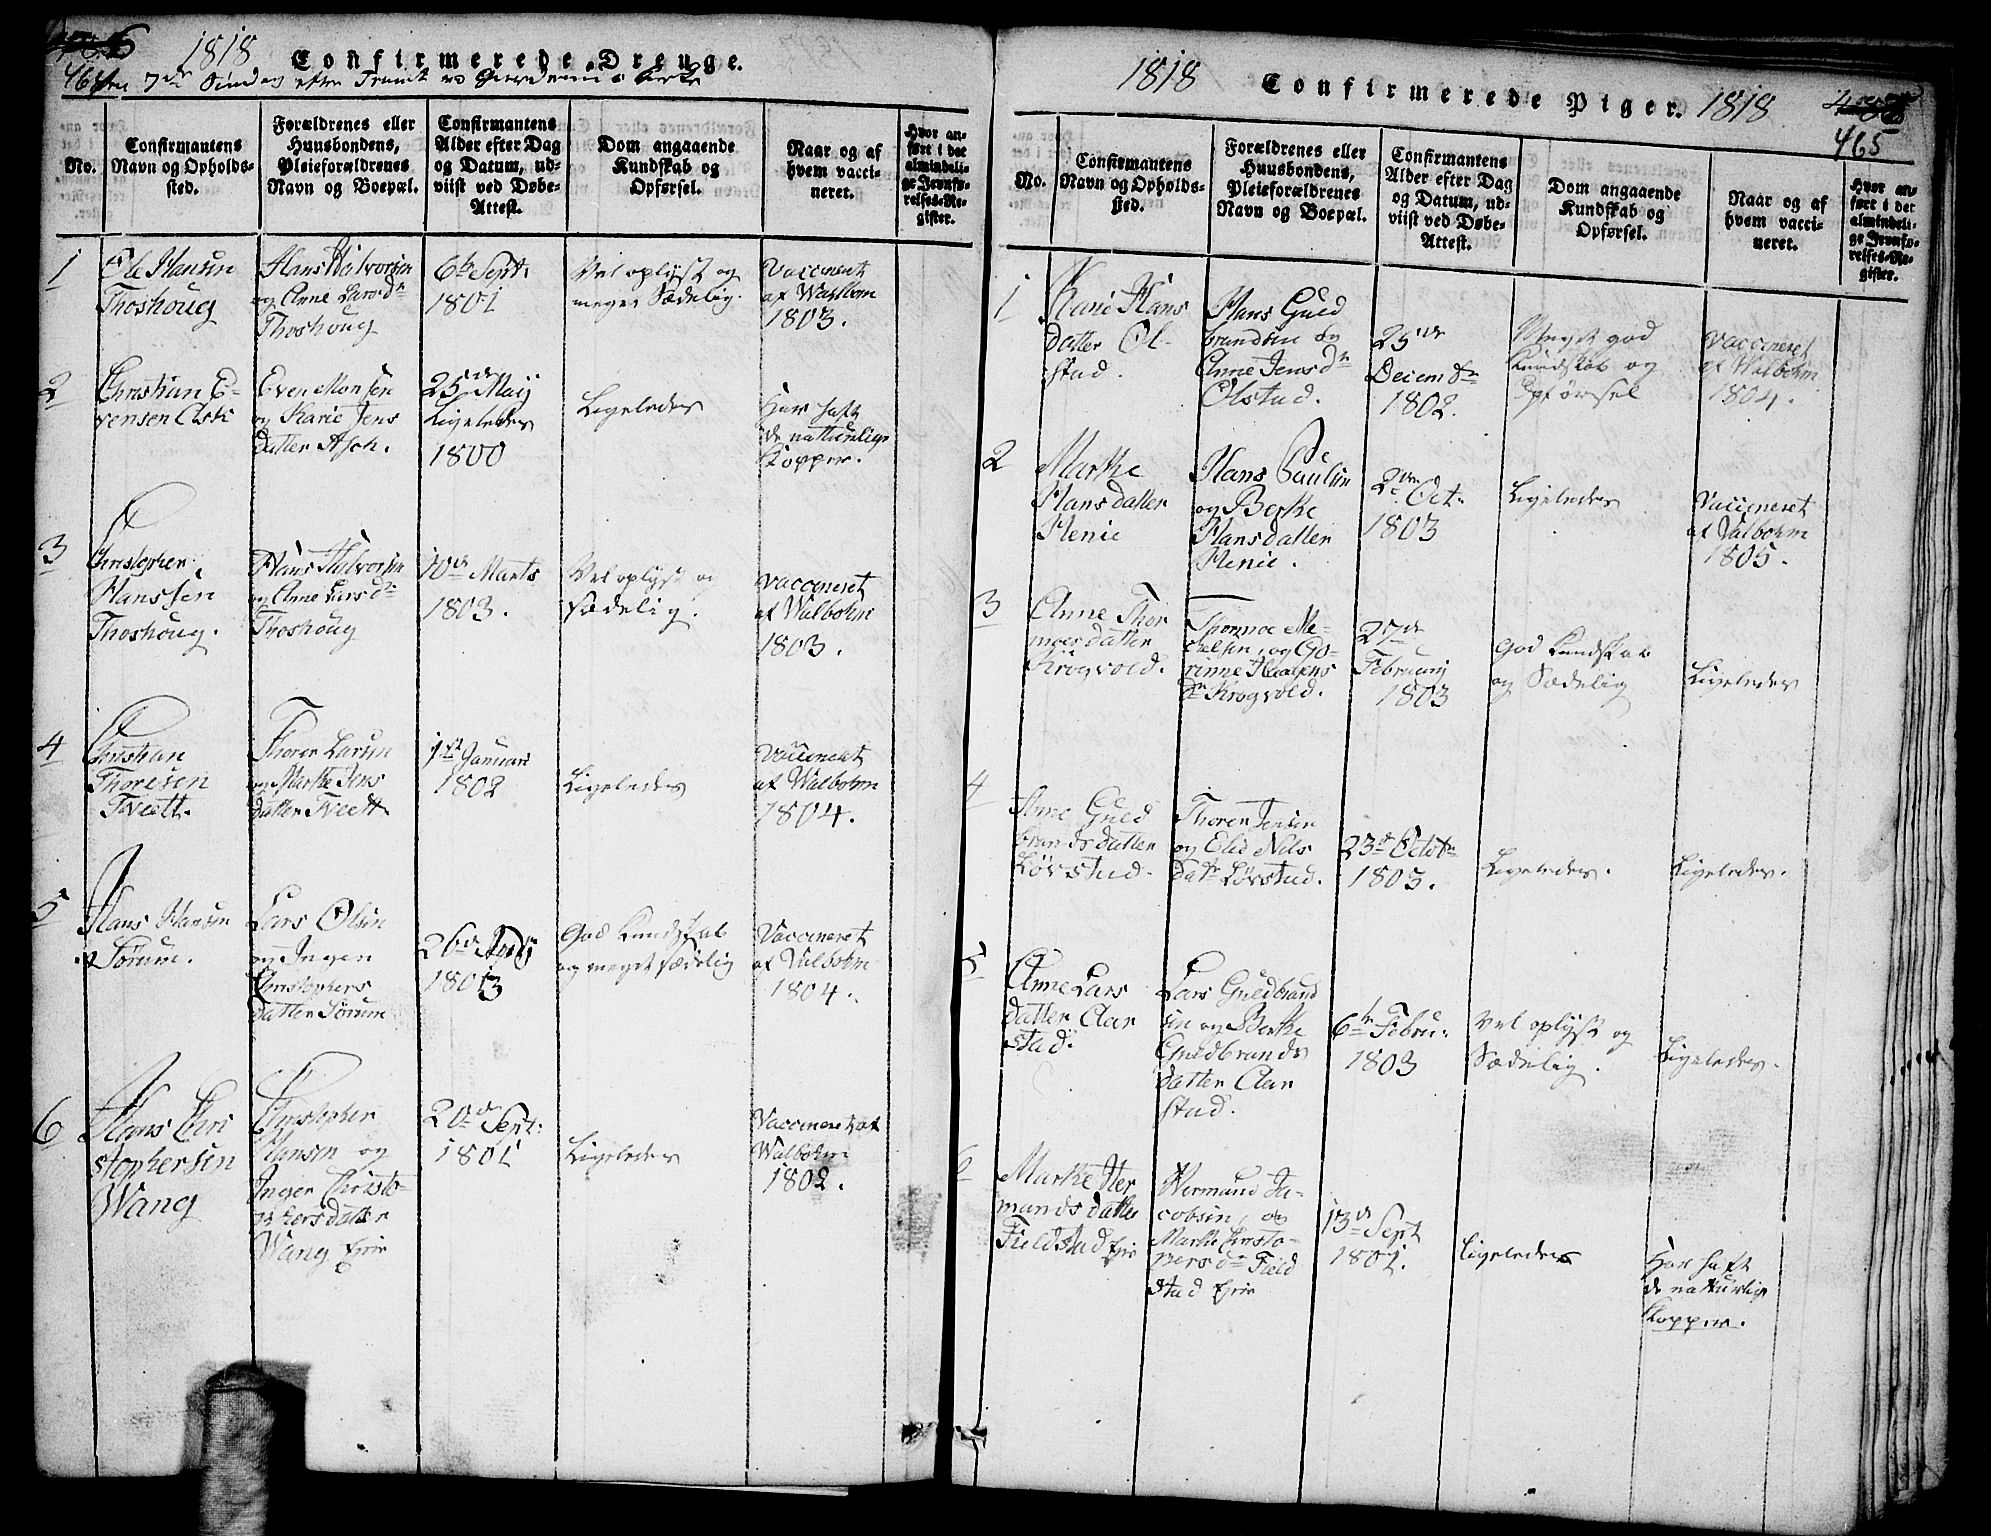 1818
Confirmerede Drenge.
464
7de Søndag efter Trinit
No.
Confirmantens
Navn og Opholds-
sted.
Forældrenes eller
Huusbondens,
Pleieforældrenes
Navn og Boepæl.
Confirmantens
Alder efter Dag
og Datum, ud-
viist ved Døbe-
Attest.
Dom angaaende
Kundskab og
Opførsel.
Naar og af
hvem vacci-
neret.
Hvor an-
ført i det
almindeli-
ge Jevnfø-
relses-Re-
gister.
1
Ole Hansen
Thoshoug
Hans Halvorsen
og Anne Larsdr
Thoshoug
6te Septr
1801
Vel oplyst og
meget Sædelig.
Vaccineret
af Walbohm
1803.
2
Christian E-
vensen Ask
Even Monsen
og Karie Jens
datter Asch.
25de Maij
Ligeledes
1800
Ligeledes
Har haft
de naturlige
Kopper.
3
Christopher
Hanssen
Thoshoug.
Hans Halvorsen
og Anne Larsdr
Thoshoug
10de Marts
1803.
Vel oplyst og
sædelig.
vaccineret
af Walbohm
1803.
4
Christian
Thoresen
Tveett.
Thorer Larsen
og Marthe Jens
datter Tveett
1ste Januari
1802
Ligeledes
Vaccineret
af Walbohm
1804.
5
Hans Hansen
Sørum.
Lars Olsen
og Inger
Christophers
datter Sørum
26de
God Kundskab
og meget sædelig
Vaccineret
af Valbohm
1804.
6
Hans Chri
stophersen
Wang
Christopher
Hansen og
Inger Christo-
phersdatter
Wang Eyer
20de Sept:
1801
Ligeledes
Vaccineret af
Walbohm
1802.
1818
Confirmerede Piger.
1818
465
No.
Confirmantens
Navn og Opholds-
sted.
Forældrenes eller
Huusbondens,
Pleieforældrenes
Navn og Boepæl.
Confirmantens
Alder efter Dag
og Datum, ud-
viist ved Døbe-
Attest.
Dom angaaende
Kundskab og
Opførsel.
Naar og af
hvem vacci-
neret.
Hvor an-
ført i det
almindeli-
ge Jevnfø-
relses-Re-
gister.
1
Karie Hans
datter Ol-
stad.
Hans Guld
brandsen og
Anne Jensdr
Olstad.
25de
Decembr
1802.
Meget god
Kundskab og
Opførsel
vaccineret
af Walbohm
1804.
2
Marthe
Hansdatter
Henie
Hans Paulsen
og Berthe
Hansdatter
Henie.
2de Oct.
1803
Ligeledes
Vaccineret
af Valbohm
1805.
3
Anne Thor
moesdatter
Krogvold.
Thormoe Me-
chelsen, og Go-
rinne Haagens
dr Krogvold.
27de
Februarij
1803
God Kundskab
og Sædelig
Ligeledes
4
Anne Guld
brandsdatter
Løvstad.
Thorer Jensen
og Elie Nils
datr Løvstad.
23de Octobr
1803.
Ligeledes.
Ligeledes.
5
Anne Lars
datter Aar
stad.
Lars Guldbrand
sen og Berthe
Guldbrands
datter Aar
stad.
6te Febru:
1803
Vel oplyst og
Sædelig.
Ligeledes.
6
Marthe Her
mandsdatter
Fieldstad Eyer
Hermand Ja-
cobsen, og
Marthe Christo-
persdr Field
stad Eyer
13de Sept
1801.
Ligeledes
Har haft
de naturlige
Kopper.